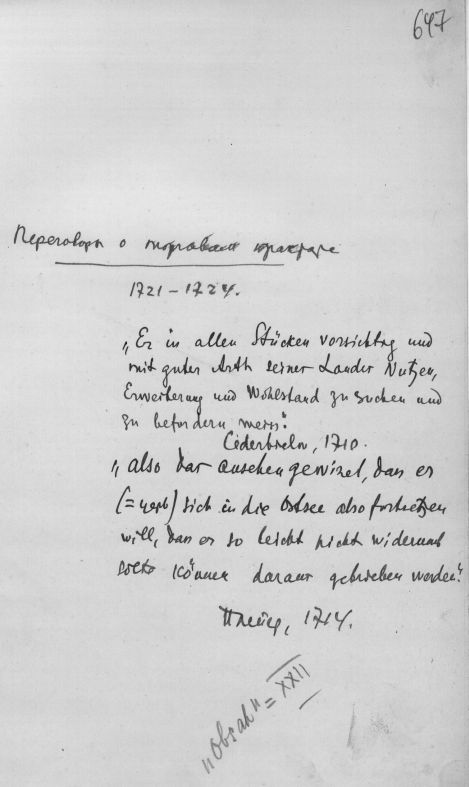 647
Переговоры о торговом трактате
1721 – 1724.
„Er in allen Stücken vorsichtig und
mit guter Arth seiner Lander Nutzen,
Erweiterung und Wohlstand zu suchen und
zu befordern weiss."
1710.
„also dar ansehen gewinet, das er
(= царь) sich in die Ostsee also fortsetzen
will, das er so leicht nicht widerumb
solte können daraus getrieben werden."
1714.
„Obsah" = XXII